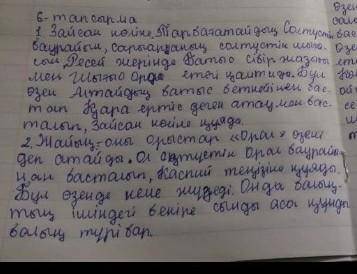 6-тапсырма
1. Зайсан көліне, Тарбағатайдың Солтүстік
баурайын, сарыарқаның солтүстік шығы-
сын, Ресей жерінде Батыс Сібір жазығы
мен өтеді қалтида. Бұл
өзен Алтайдың батыс беткейінен бас-
тап Қара ертіс деген атаумен бас-
талып, Зайсан көліне құяды.
2. Жайық-оны орыстар «Орал» өзені
деп атайды. Ол оңтүстік Орал баурайы-
нан басталып, Каспий теңізіне құяды.
Бұл өзенде кеме жүзеді. Онда балық-
тың ішіндегі бекіре сынды аса құнды
балық түрі бар.